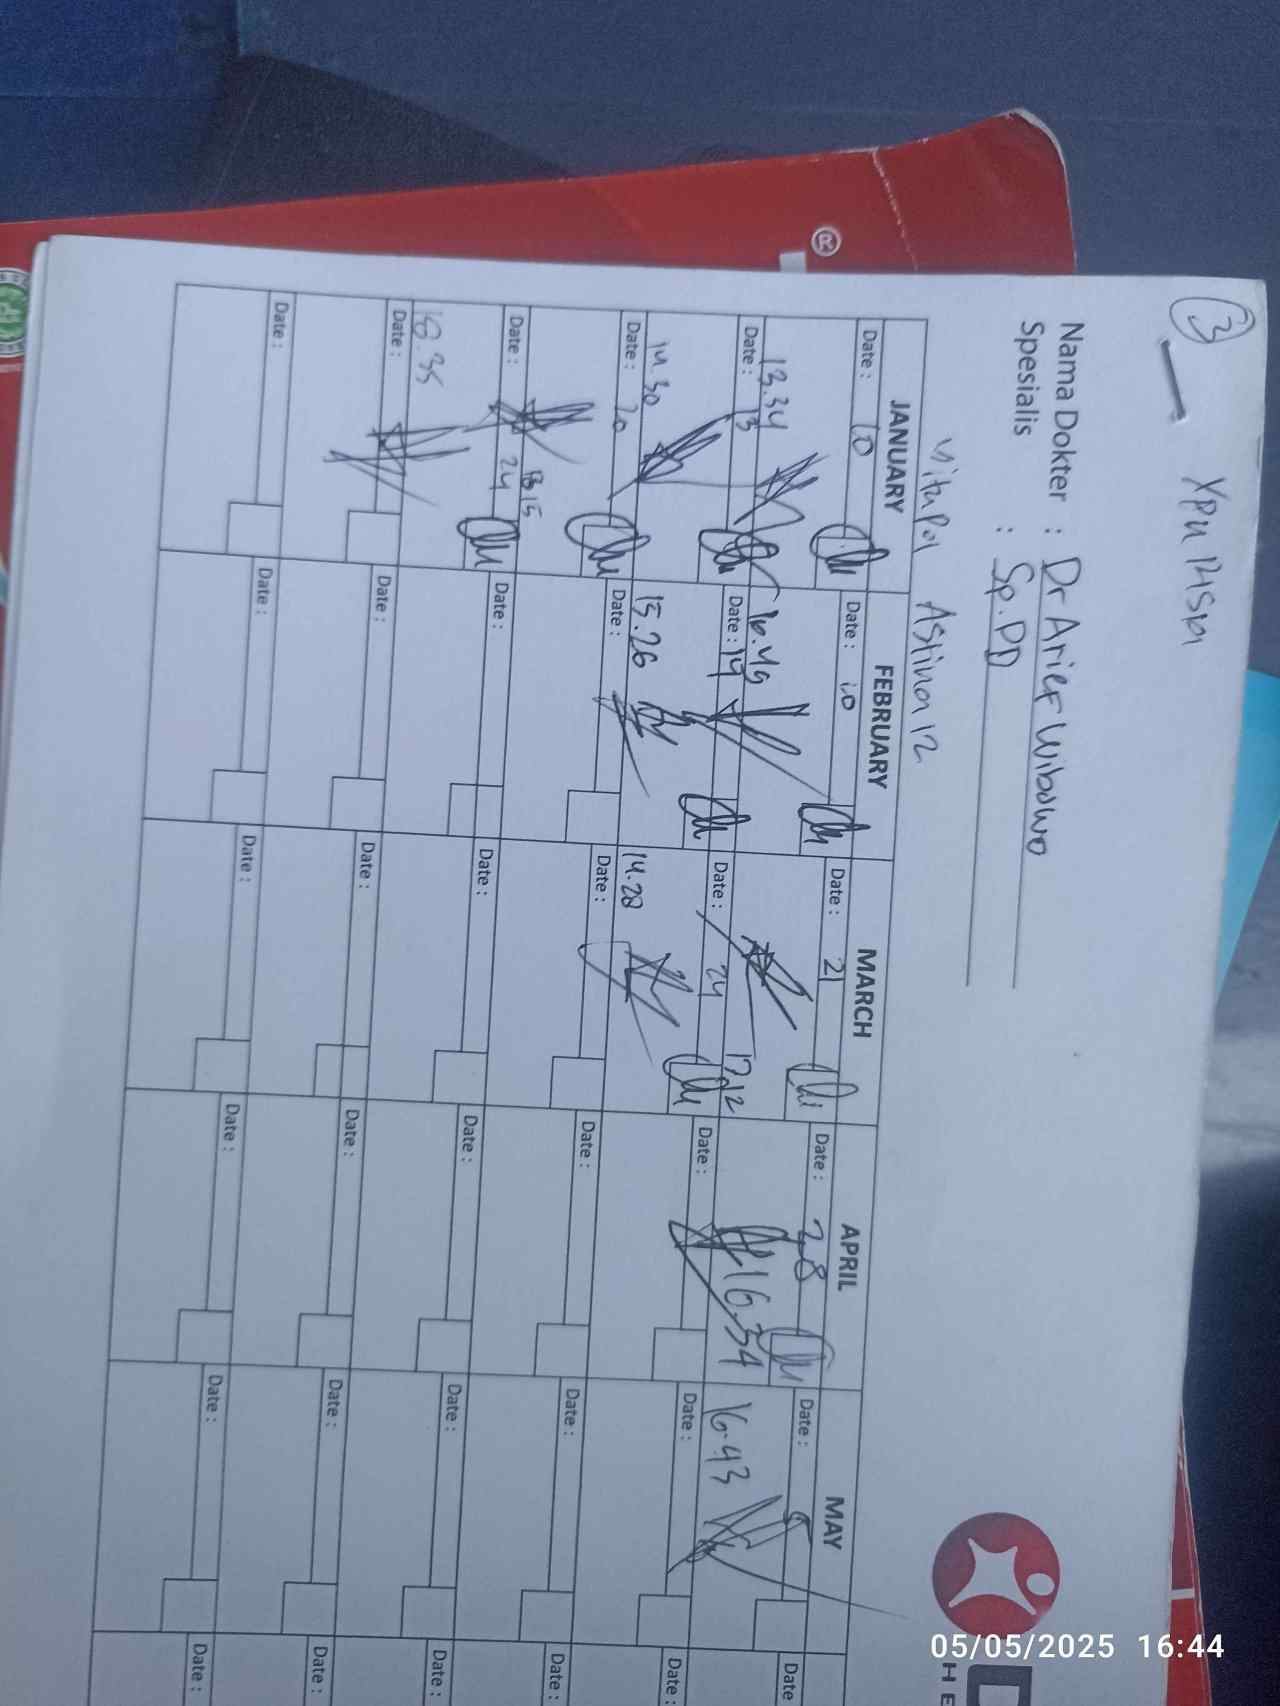 3
Nama Dokter : Dr Arief Wibowo
Spesialis : Sp.PD
JANUARY FEBRUARY MARCH APRIL MAY
Date : 10 Date : 10 Date : 21 Date : 28 Date : 5 Date
13.34 16.49 17.12 16.34 16.43
Date : 13 Date : 14 Date : 24 Date : Date : Date :
14.30 15.26 14.28
Date : 20 Date : Date : Date : Date : Date :
Date : 24 Date : Date : Date : Date : Date :
18.35
Date : Date : Date : Date : Date : Date :
Date : Date : Date : Date : Date : Date :
®
05/05/2025 16:44